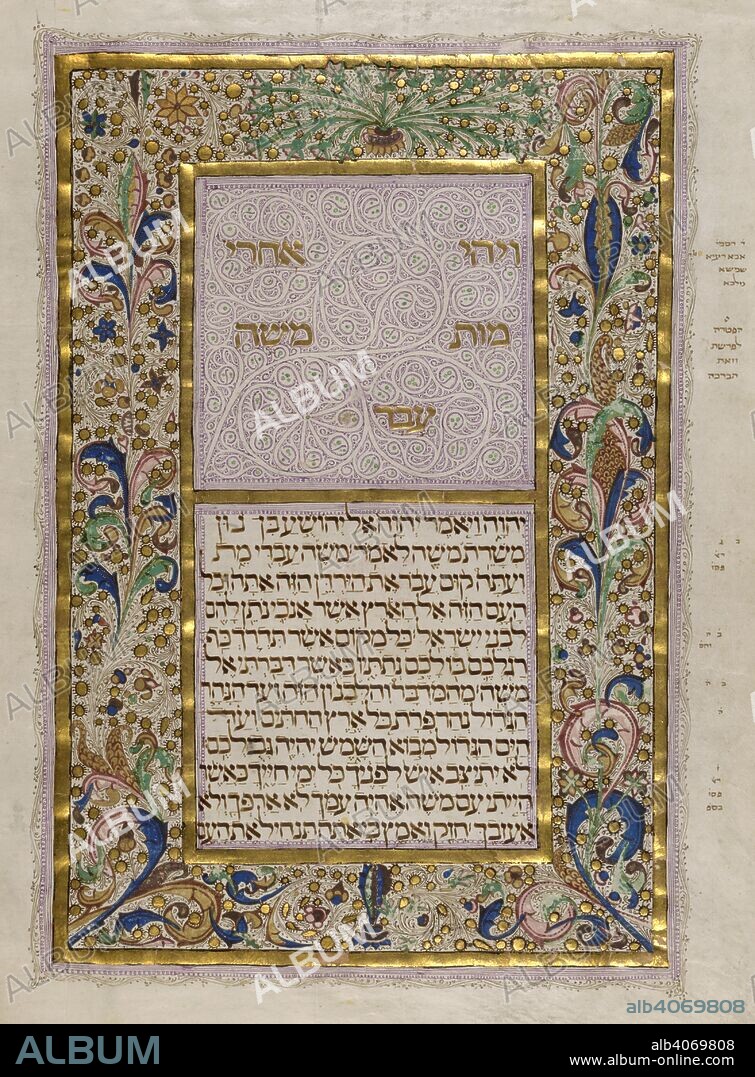 ויהי אחרי
מות משה
עבד
יהוה ויאמר יהוה אל יהושע בן נון
משרת משה לאמר משה עבדי מת
ועתה קום עבר את הירדן הזה אתה וכל
העם הזה אל הארץ אשר אנכי נתן להם
לבני ישראל כל מקום אשר תדרך כף
רגלכם בו לכם נתתיו כאשר דברתי אל
משה מהמדבר והלבנון הזה ועד הנהר
הגדול נהר פרת כל ארץ החתים ועד
הים הגדול מבוא השמש יהיה גבולכם
לא יתיצב איש לפניך כל ימי חייך כאשר
הייתי עם משה אהיה עמך לא ארפך ולא
אעזבך חזק ואמץ כי אתה תנחיל את העם
שמשא
מלכא
הפטרה
לפרשת
וזאת
הברכה
ALBUM
alb4069808
ALBUM
alb4069808
www.album-online.com